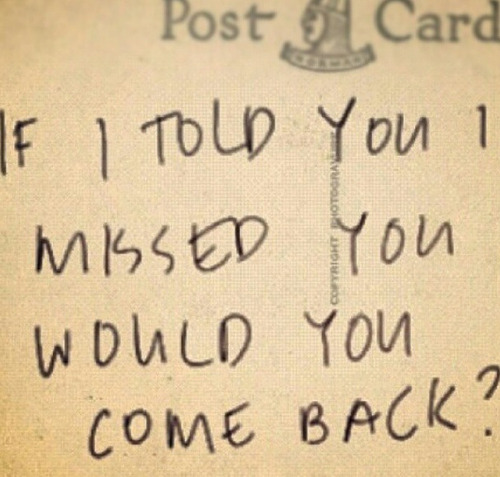 Post Card
NORMAN
IF I TOLD YOU I
MISSED YOU
WOULD YOU
COME BACK?
COPYRIGHT PHOTOGRAPH